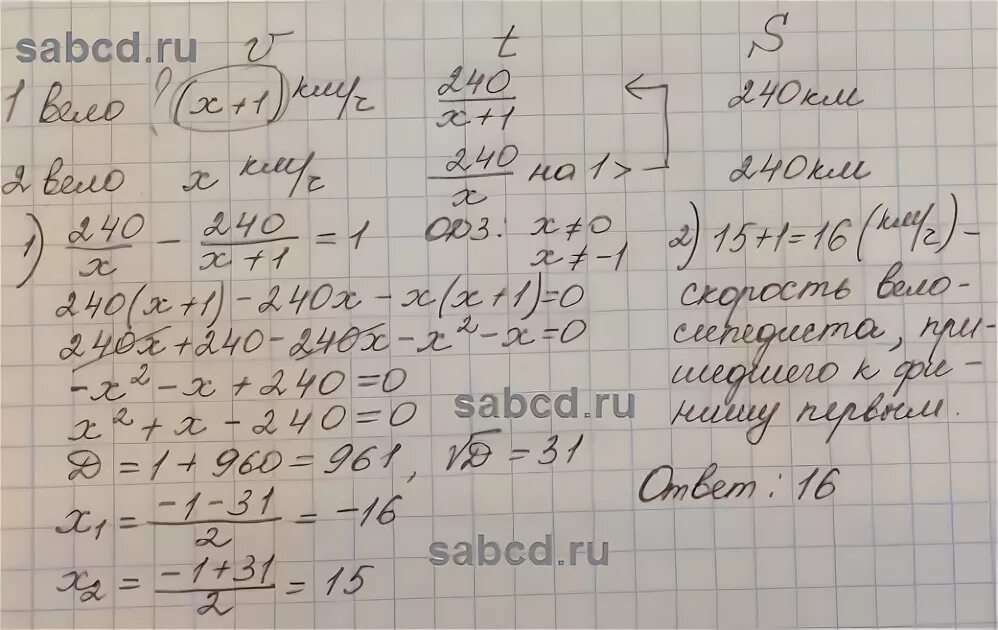 sabcd.ru
v t S
1 вело ? (x+1) км/ч 240/(x+1) 240 км
2 вело x км/ч 240/x на 1 > 240 км
1) 240/x - 240/(x+1) = 1
ОДЗ: x ≠ 0
x ≠ -1
240(x+1) - 240x - x(x+1) = 0
240x + 240 - 240x - x² - x = 0
-x² - x + 240 = 0
x² + x - 240 = 0
sabcd.ru
D = 1 + 960 = 961, √D = 31
x₁ = (-1-31)/2 = -16
x₂ = (-1+31)/2 = 15
sabcd.ru
2) 15+1=16 (км/ч) -
скорость вело-
сипедиста, при-
шедшего к фи-
нишу первым.
Ответ: 16